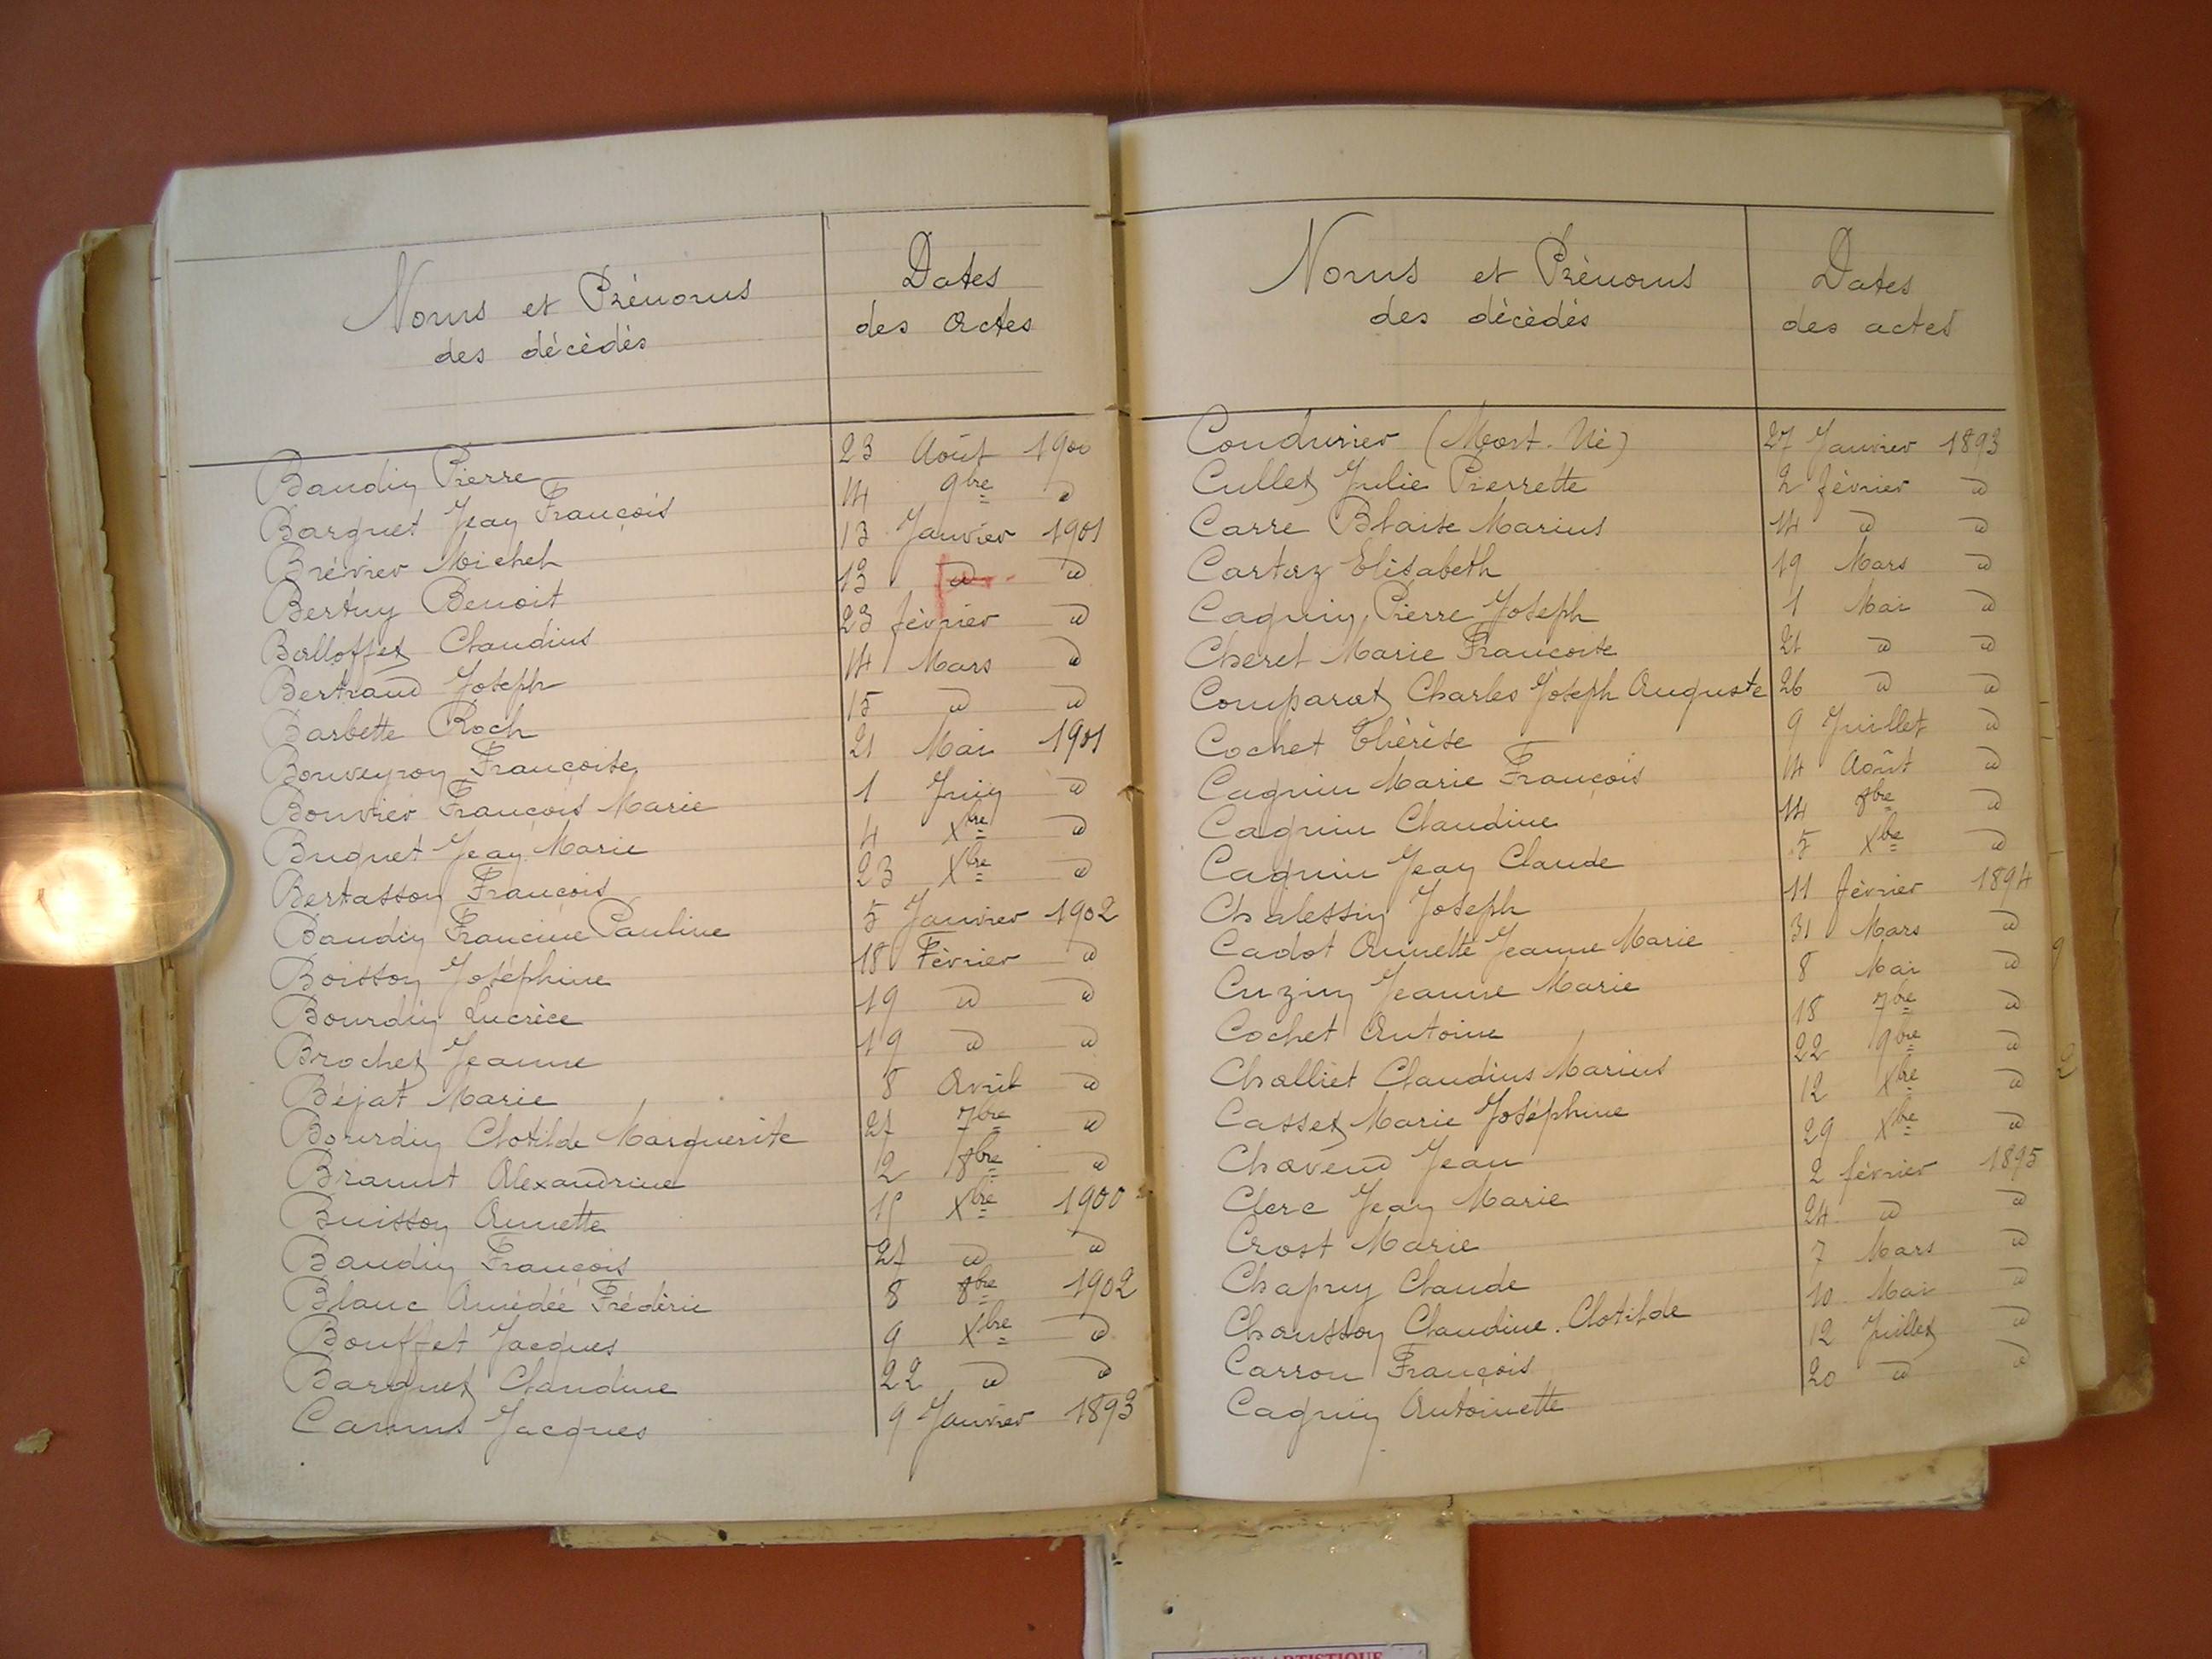 Noms et Prénoms
des décédés
Dates
des Actes
Baudin Pierre 23 Août 1900
Barquet Jean François 14 9bre d
Brévier Michel 13 Janvier 1901
Bertuy Benoit 13 d d
Balloffet Claudius 23 février d
Bertraud Joseph 14 Mars d
Barbette Roch 15 d d
Bouveyron Françoise 21 Mai 1901
Bouvier François Marie 1 Juin d
Buquet Jean Marie 4 Xbre d
Bertasson François 23 Xbre d
Baudin Francine Pauline 5 Janvier 1902
Boisson Joséphine 18 Février d
Bourdin Lucrèce 19 d d
Brochet Jeanne 19 d d
Béjat Marie 8 Avril d
Bourdin Clotilde Marguerite 27 7bre d
Alexandrine 12 8bre d
Buisson Annette Xbre 1900
Baudin François 27 d d
Blanc Amédée Frédéric 8 8bre 1902
Bouffet Jacques 9 Xbre d
Barquet Claudine 22 d d
Camus Jacques 9 Janvier 1893
Noms et Prénoms
des décédés
Dates
des actes
Condurier (Mort-Né) 27 Janvier 1893
Cullet Julie Pierrette 2 février d
Carre Blaise Marius 14 d d
Cartaz Elisabeth 19 Mars d
Cagnin Pierre Joseph 1 Mai d
Cheret Marie Françoise 21 d d
Comparat Charles Joseph Auguste 26 d d
Cochet Thérèse 9 Juillet d
Cagnin Marie François 14 Août d
Cagnin Claudine 14 8bre d
Cagnin Jean Claude 5 Xbre d
Chalessin Joseph 11 février 1894
Cadot Annette Jeanne Marie 31 Mars d
Cuzin Jeanne Marie 8 Mai d
Cochet Antoine 18 7bre d
Challiet Claudius Marius 22 9bre d
Casset Marie Joséphine 12 Xbre d
Chavend Jean 29 Xbre d
Clerc Jean Marie 2 février 1895
Crost Marie 24 d d
Chapuy Claude 7 Mars d
Chausson Claudine Clotilde 10 Mai d
Carron François 12 Juillet d
Cagnin Antoinette 20 d d